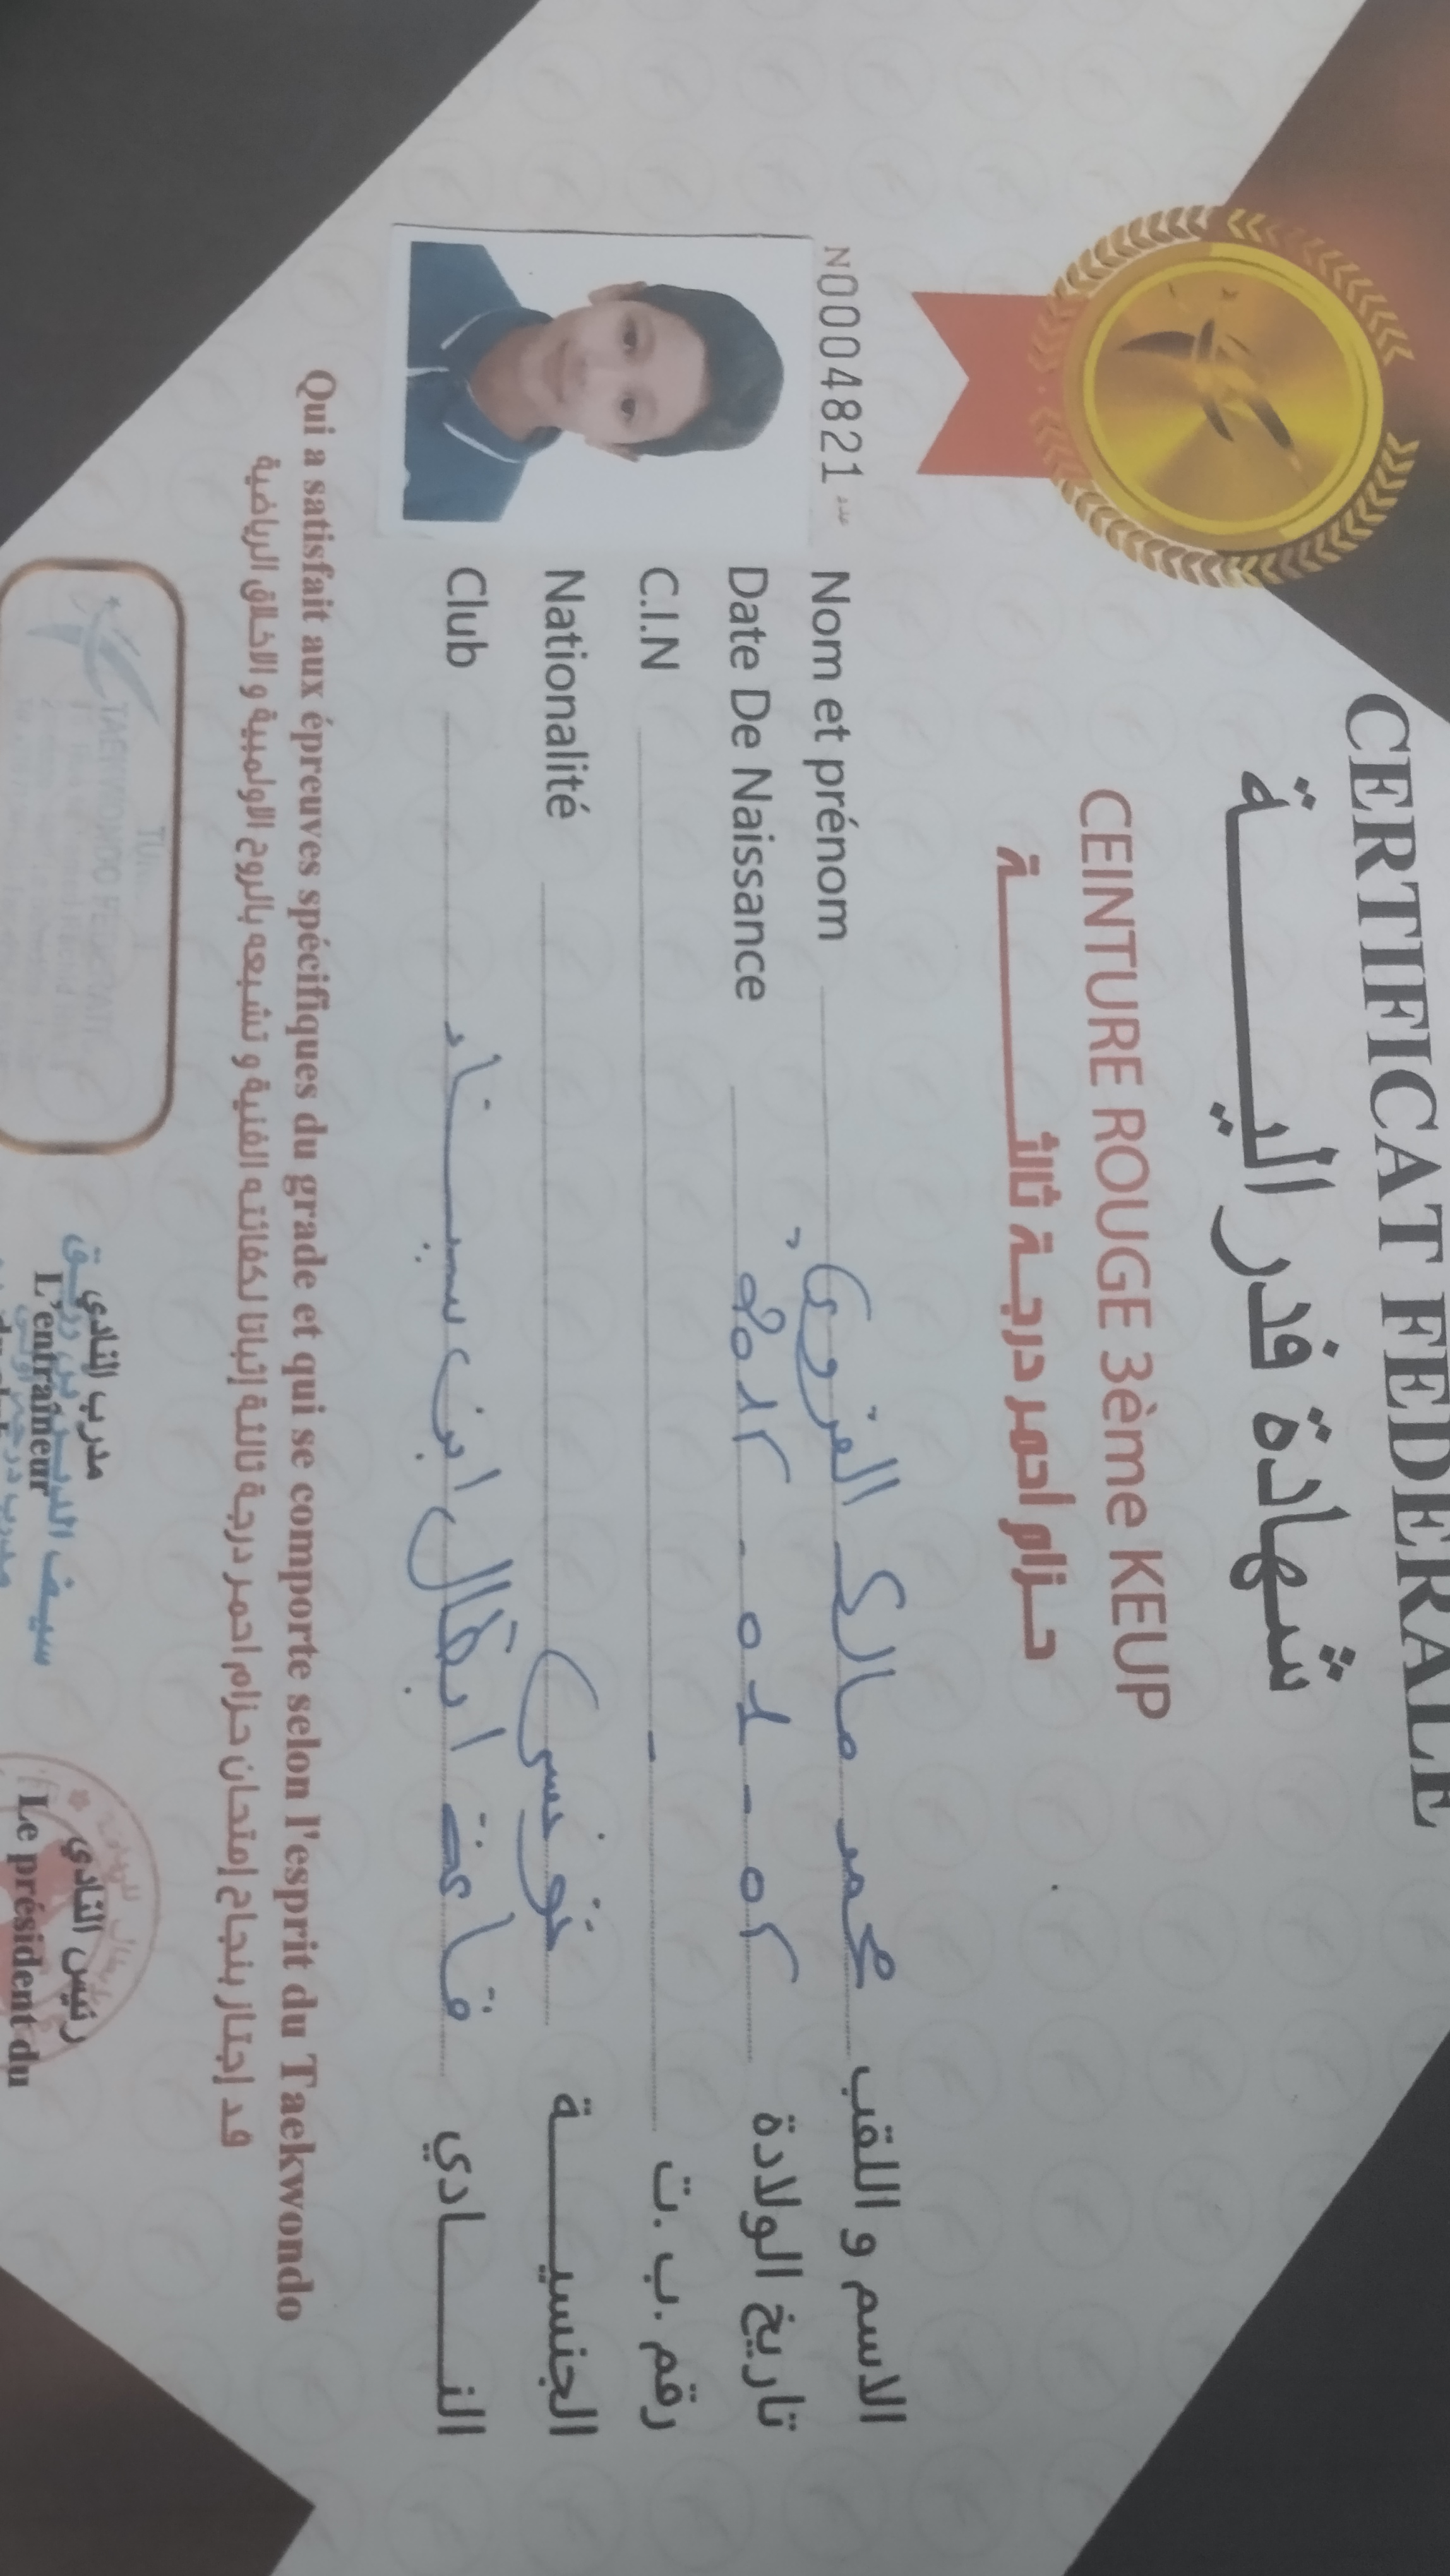 CERTIFICAT FEDERALE
شهادة فدرالية
CEINTURE ROUGE 3ème KEUP
حزام احمر درجة ثالثة
N0004821 عدد
Nom et prénom محمد مالك الغزوي الاسم و اللقب
Date De Naissance تاريخ الولادة
C.I.N - رقم .ب .ت
Nationalité تونسي الجنسية
Club قاعة ابطال ابن سيناد النادي
Qui a satisfait aux épreuves spécifiques du grade et qui se comporte selon l'esprit du Taekwondo
قد إجتاز بنجاح إمتحان حزام احمر درجة ثالثة إثباتا لكفائته الفنية و تشبعه بالروح الاولمبية و الاخلاق الرياضية
TAEKWONDO
مدرب النادي
L'entraîneur
رئيس النادي
Le président du